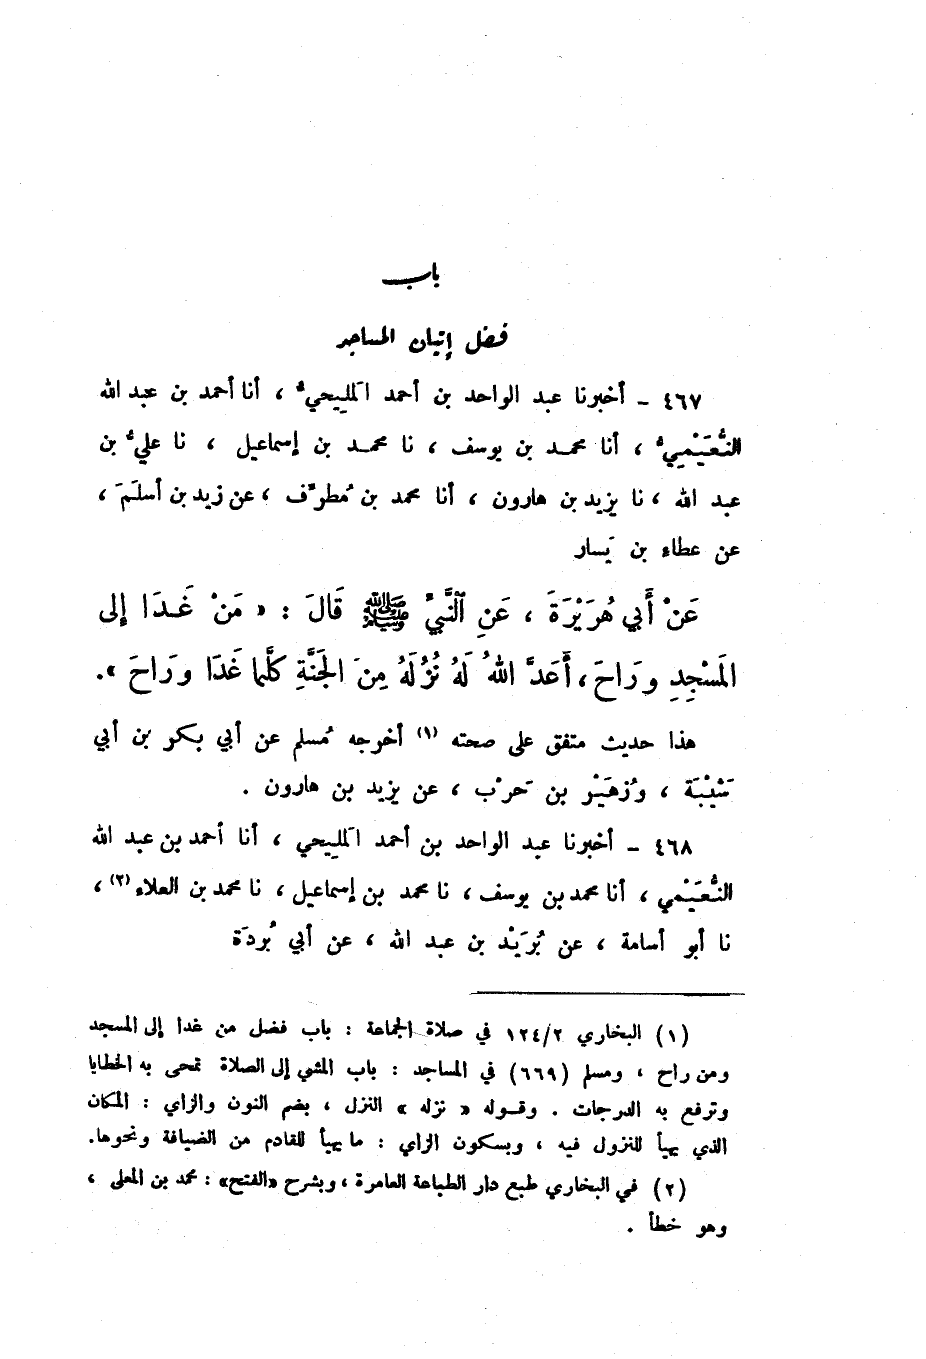 باب
فضل إتيان المساجد
٤٦٧ – أخبرنا عبد الواحد بن أحمد المَلِيحيُّ ، أنا أحمد بن عبد الله
النُّعَيْمِيُّ ، أنا محمد بن يوسف ، نا محمد بن إسماعيل ، نا عليُّ بن
عبد الله ، نا يزيد بن هارون ، أنا محمد بن مُطرِّف ، عن زيد بن أسلَمَ ،
عن عطاء بن يَسار
عَنْ أَبي هُرَيْرَةَ ، عَنِ ٱلنَّبيِّ ﷺ قَالَ : « مَنْ غَدَا إِلى
المَسْجِدِ ورَاحَ ، أَعَدَّ اللهُ لَهُ نُزُلَهُ مِنَ الجَنَّةِ كلَّما غَدَا ورَاحَ ».
هذا حديث متفق على صحته (١) أخرجه مُسلم عن أبي بكر بن أبي
شَيْبَة ، وزُهَيْر بن حَرْب ، عن يزيد بن هارون .
٤٦٨ – أخبرنا عبد الواحد بن أحمد المَلِيحي ، أنا أحمد بن عبد الله
النُّعَيْمي ، أنا محمد بن يوسف ، نا محمد بن إسماعيل ، نا محمد بن العلاء (٢) ،
نا أبو أسامة ، عن بُرَيْد بن عبد الله ، عن أبي بُردَة
(١) البخاري ١٢٤/٢ في صلاة الجماعة : باب فضل من غدا إلى المسجد
ومن راح ، ومسلم (٦٦٩) في المساجد : باب المشي إلى الصلاة تمحى به الخطايا
وترفع به الدرجات . وقوله « نزله » النزل ، بضم النون والزاي : المكان
الذي يهيأ للنزول فيه ، وبسكون الزاي : ما يهيأ للقادم من الضيافة ونحوها.
(٢) في البخاري طبع دار الطباعة العامرة ، وبشرح «الفتح» : محمد بن المعلى ،
وهو خطأ .